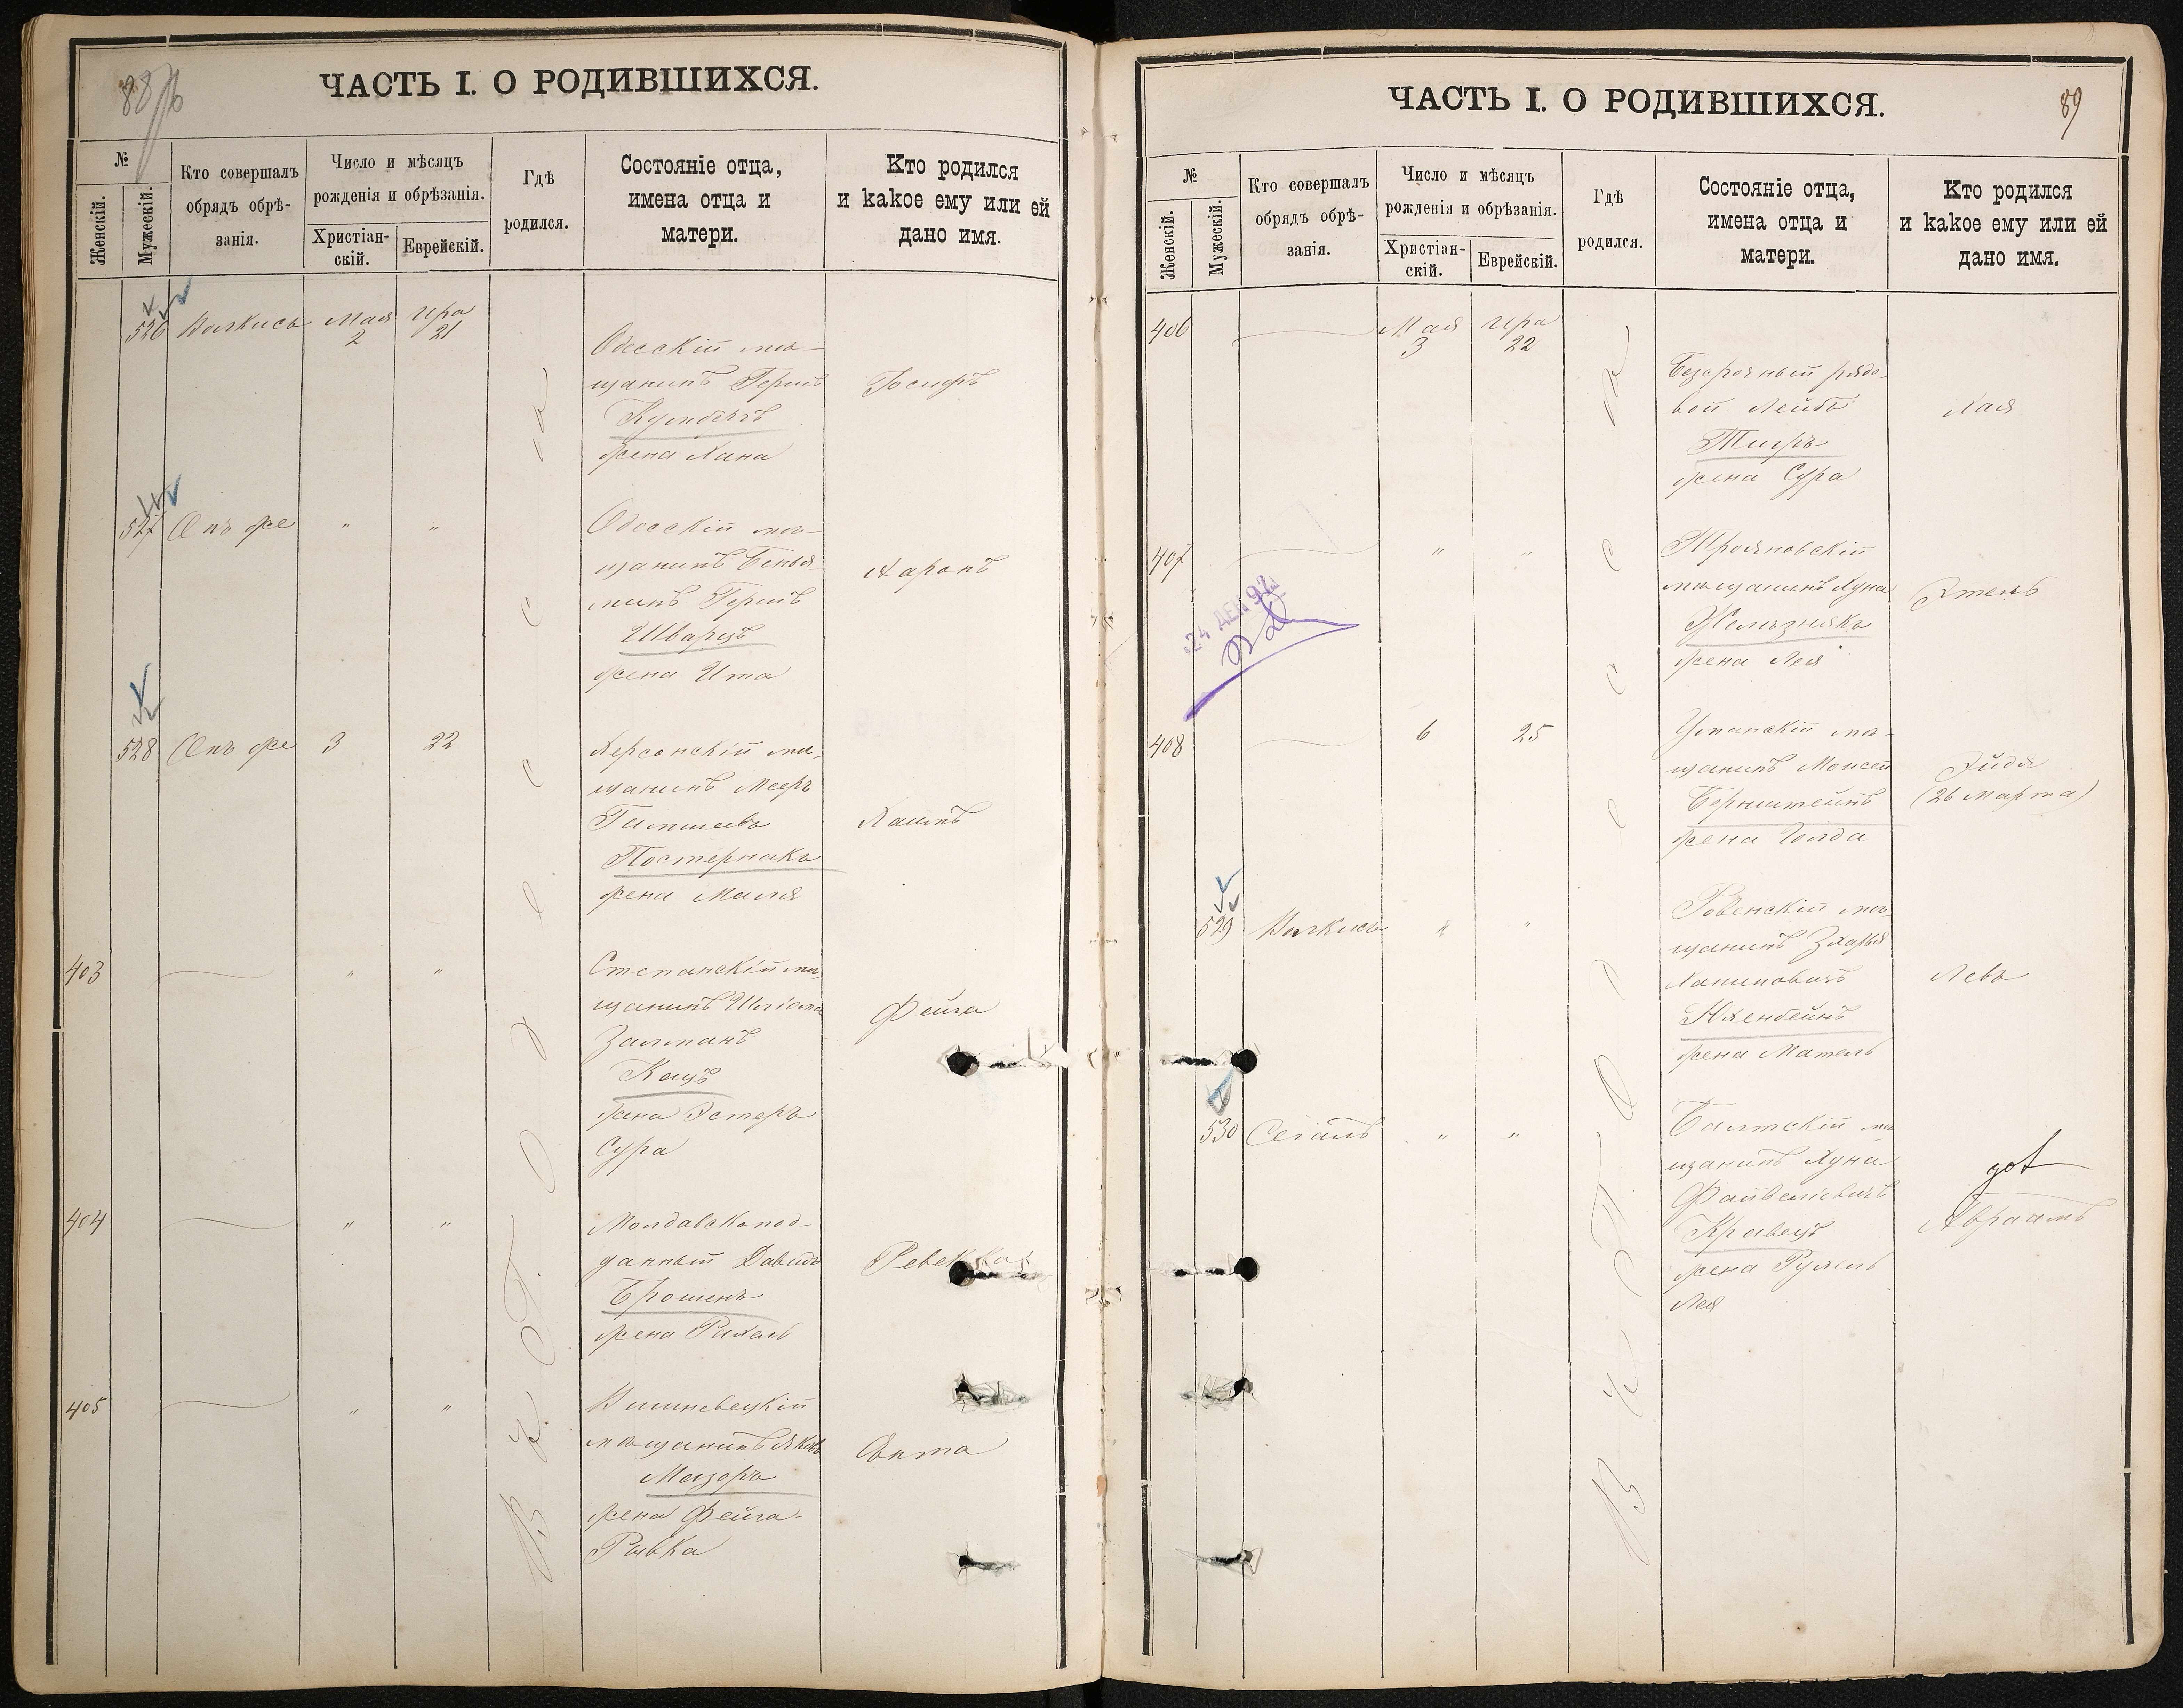 88
ЧАСТЬ I. О РОДИВШИХСЯ.
№
Женскій.
Мужескій.
Кто совершалъ
обрядъ обрѣ-
занія.
Число и мѣсяцъ
рожденія и обрѣзанія.
Христіан-
скій.
Еврейскій.
Гдѣ
родился.
Состояніе отца,
имена отца и
матери.
Кто родился
и какое ему или ей
дано имя.
526
Мая
2
Ира
21
Одесскій мѣ-
щанинъ Гершъ
жена Хана
Іосифъ
527 Онъ же " "
Одесскій мѣ-
щанинъ Бенья-
минъ Гершъ
Шварцъ
жена Ита
Ааронъ
528 Онъ же 3 22
Херсонскій мѣ-
щанинъ Мееръ
Постернакъ
жена Маля
Хаимъ
403 " "
Степанскій мѣ-
щанинъ Шліома
Залманъ
Кацъ
жена Эстеръ
Сура
Фейга
404 " "
Молдавскопод-
данный Давидъ
Брошенъ
жена Рахель
Ревекка
405 " "
Вишневецкій
мѣщанинъ Яковъ
Мазоръ
жена Фейга-
Рывка
Въ г. Одессѣ
89
ЧАСТЬ I. О РОДИВШИХСЯ.
№
Женскій.
Мужескій.
Кто совершалъ
обрядъ обрѣ-
занія.
Число и мѣсяцъ
рожденія и обрѣзанія.
Христіан-
скій.
Еврейскій.
Гдѣ
родился.
Состояніе отца,
имена отца и
матери.
Кто родился
и какое ему или ей
дано имя.
406
Мая
3
Ира
22
Безсрочный рядо-
вой Лейбъ
Тигръ
жена Сура
Хая
407 " "
Трояновскій
мѣщанинъ Хуна
Желѣзнякъ
жена Лея
Этель
24 ДЕК 92
408 6 25
Уманскій мѣ-
щанинъ Моисей
Бернштейнъ
жена Голда
Эйдя
(26 марта)
529 " "
Ровенскій мѣ-
щанинъ
жена Матель
Левъ
530 Сегалъ " "
Балтскій мѣ-
щанинъ Хуна
Файвелевичъ
Кравецъ
жена Рухель
Лея
got
Авраамъ
Въ г. Одессѣ